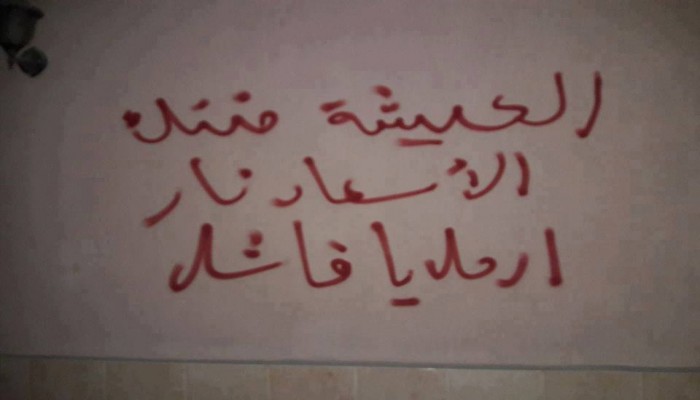 العيشة ضنك
الأسعار نار
ارحل يا فاشل